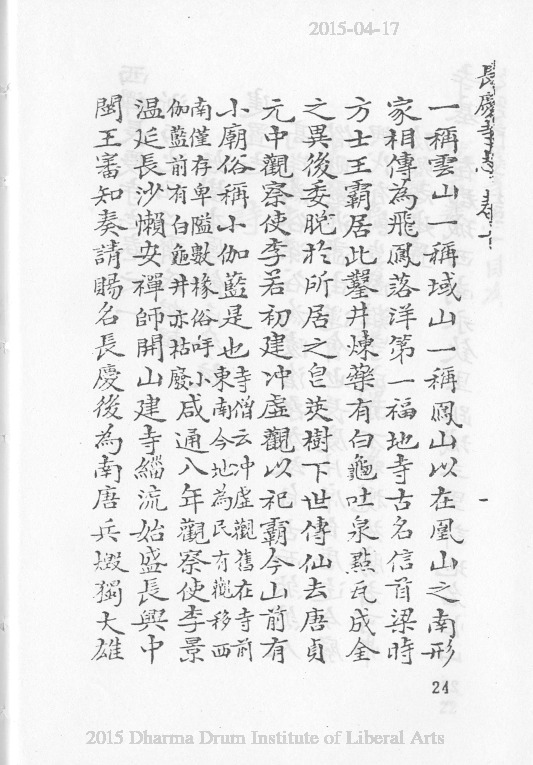 2015-04-17
長慶寺志 卷一
一稱雲山一稱域山一稱鳳山以在凰山之南形
家相傳為飛鳳落洋第一福地寺古名信首梁時
方士王霸居此鑿井煉藥有白龜吐泉點瓦成金
之異後委脫於所居之皂莢樹下世傳仙去唐貞
元中觀察使李若初建冲虛觀以祀霸今山前有
小廟俗稱小伽藍是也寺僧云冲虛觀舊在寺前
東南今地為民有觀移西
南僅存卑隘數椽俗呼小
伽藍前有白龜井亦枯廢咸通八年觀察使李景
温延長沙懶安禪師開山建寺緇流始盛長興中
閩王審知奏請賜名長慶後為南唐兵燬獨大雄
24
2015 Dharma Drum Institute of Liberal Arts